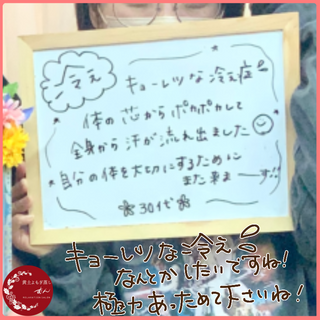 冷え
キョーレツな冷え症
体の芯からポカポカして
全身から汗が流れ出ました
自分の体を大切にするために
また来まーす!!
30代
キョーレツな冷え
なんとかしたいですね!
極力あっためて下さいね!